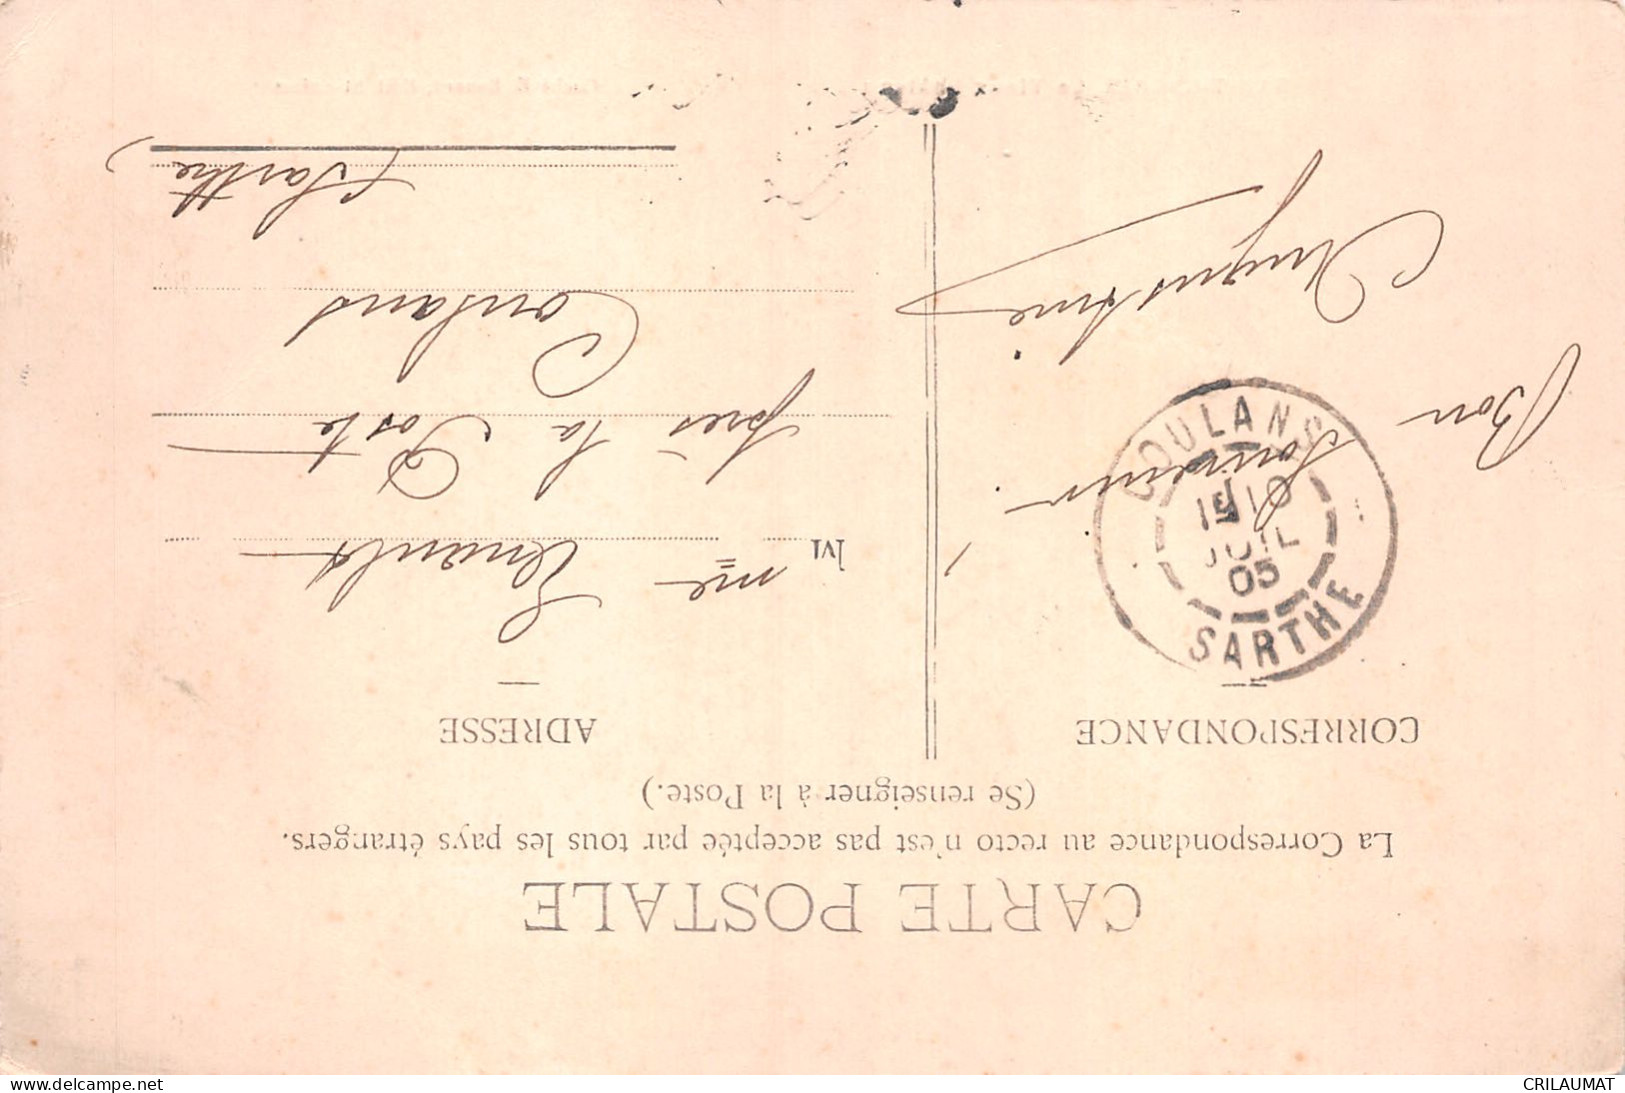 CARTE POSTALE
La Correspondance au recto n'est pas acceptée par tous les pays étrangers.
(Se renseigner à la Poste.)
CORRESPONDANCE
ADRESSE
Bon
Souvenir.
Augustine
M me
près la Poste
Coulans
(Sarthe)
COULANS
10
JUIL
05
SARTHE
www.delcampe.net
CRILAUMAT